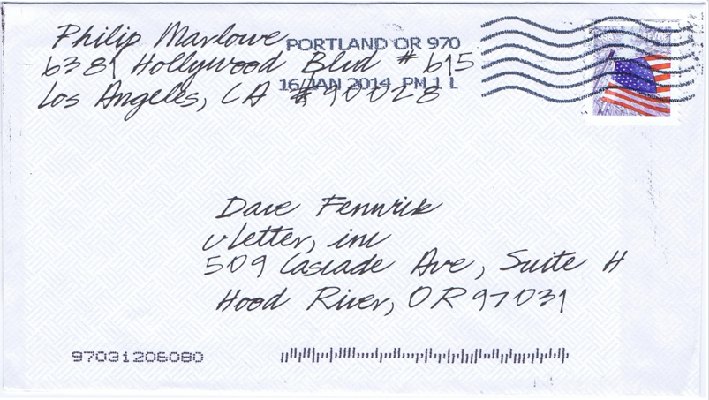 Philip Marlowe
6381 Hollywood Blvd # 615
Los Angeles, CA #90028
PORTLAND OR 970
16 JAN 2014 PM 1 L
Dave Fennwick
vLetter, inc
509 Cascade Ave, Suite H
Hood River, OR 97031
97031206080